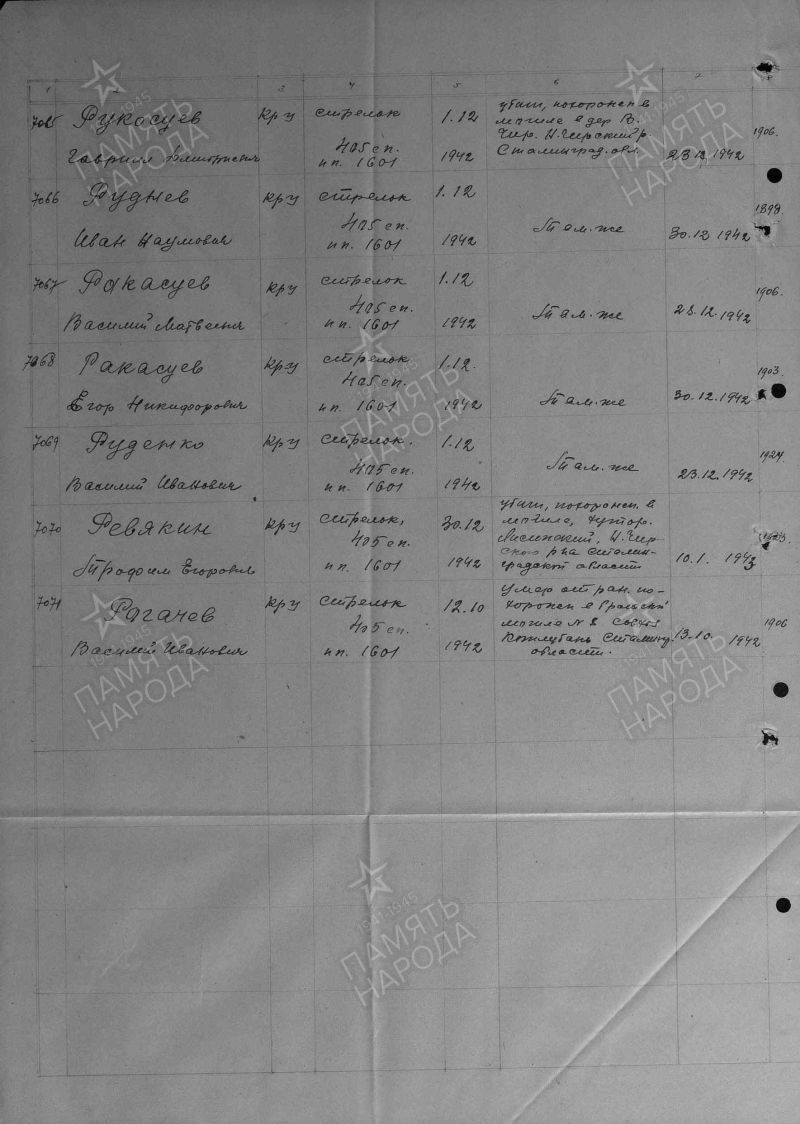 1 2 3 4 5 6 7
7065 Рукосуев кр-ц стрелок 1.12 убит, похоронен в
могиле в дер В.
405 сп. Чир. Н.Чирский р.
Гаврил Дмитриевич пп. 1601 1942 Сталинград. обл. 23 12 1942 1906.
7066 Руднев кр-ц стрелок 1.12
405 сп.
Иван Наумович пп. 1601 1942 Там-же 30.12 1942 1898
7067 Ракасуев кр-ц стрелок 1.12
405 сп.
Василий Матвеевич пп. 1601 1942 Там-же 28.12.1942 1906.
7068 Ракасуев кр-ц стрелок 1.12.
405 сп.
Егор Никифорович пп. 1601 1942 Там-же 30.12.1942 1903
7069 Руденко кр-ц стрелок. 1.12
405 сп.
Василий Иванович пп. 1601 1942 Там-же 23.12.1942 1924
7070 Ревякин кр-ц стрелок, 30.12 убит, похоронен в
могиле, хутор.
405 сп. Лисинский, Н.Чир-
ского р-на Сталин-
Трофим Егорович пп. 1601 1942 градской области 10.1. 1943
7071 Рогачев кр-ц стрелок 12.10 Умер от ран. по-
хоронен в братской
405 сп. могиле № 8 совхоз
Василий Иванович пп. 1601 1942 Котлубань Сталингр. 13.10. 1942 1906
области.
1941-1945
ПАМЯТЬ
НАРОДА